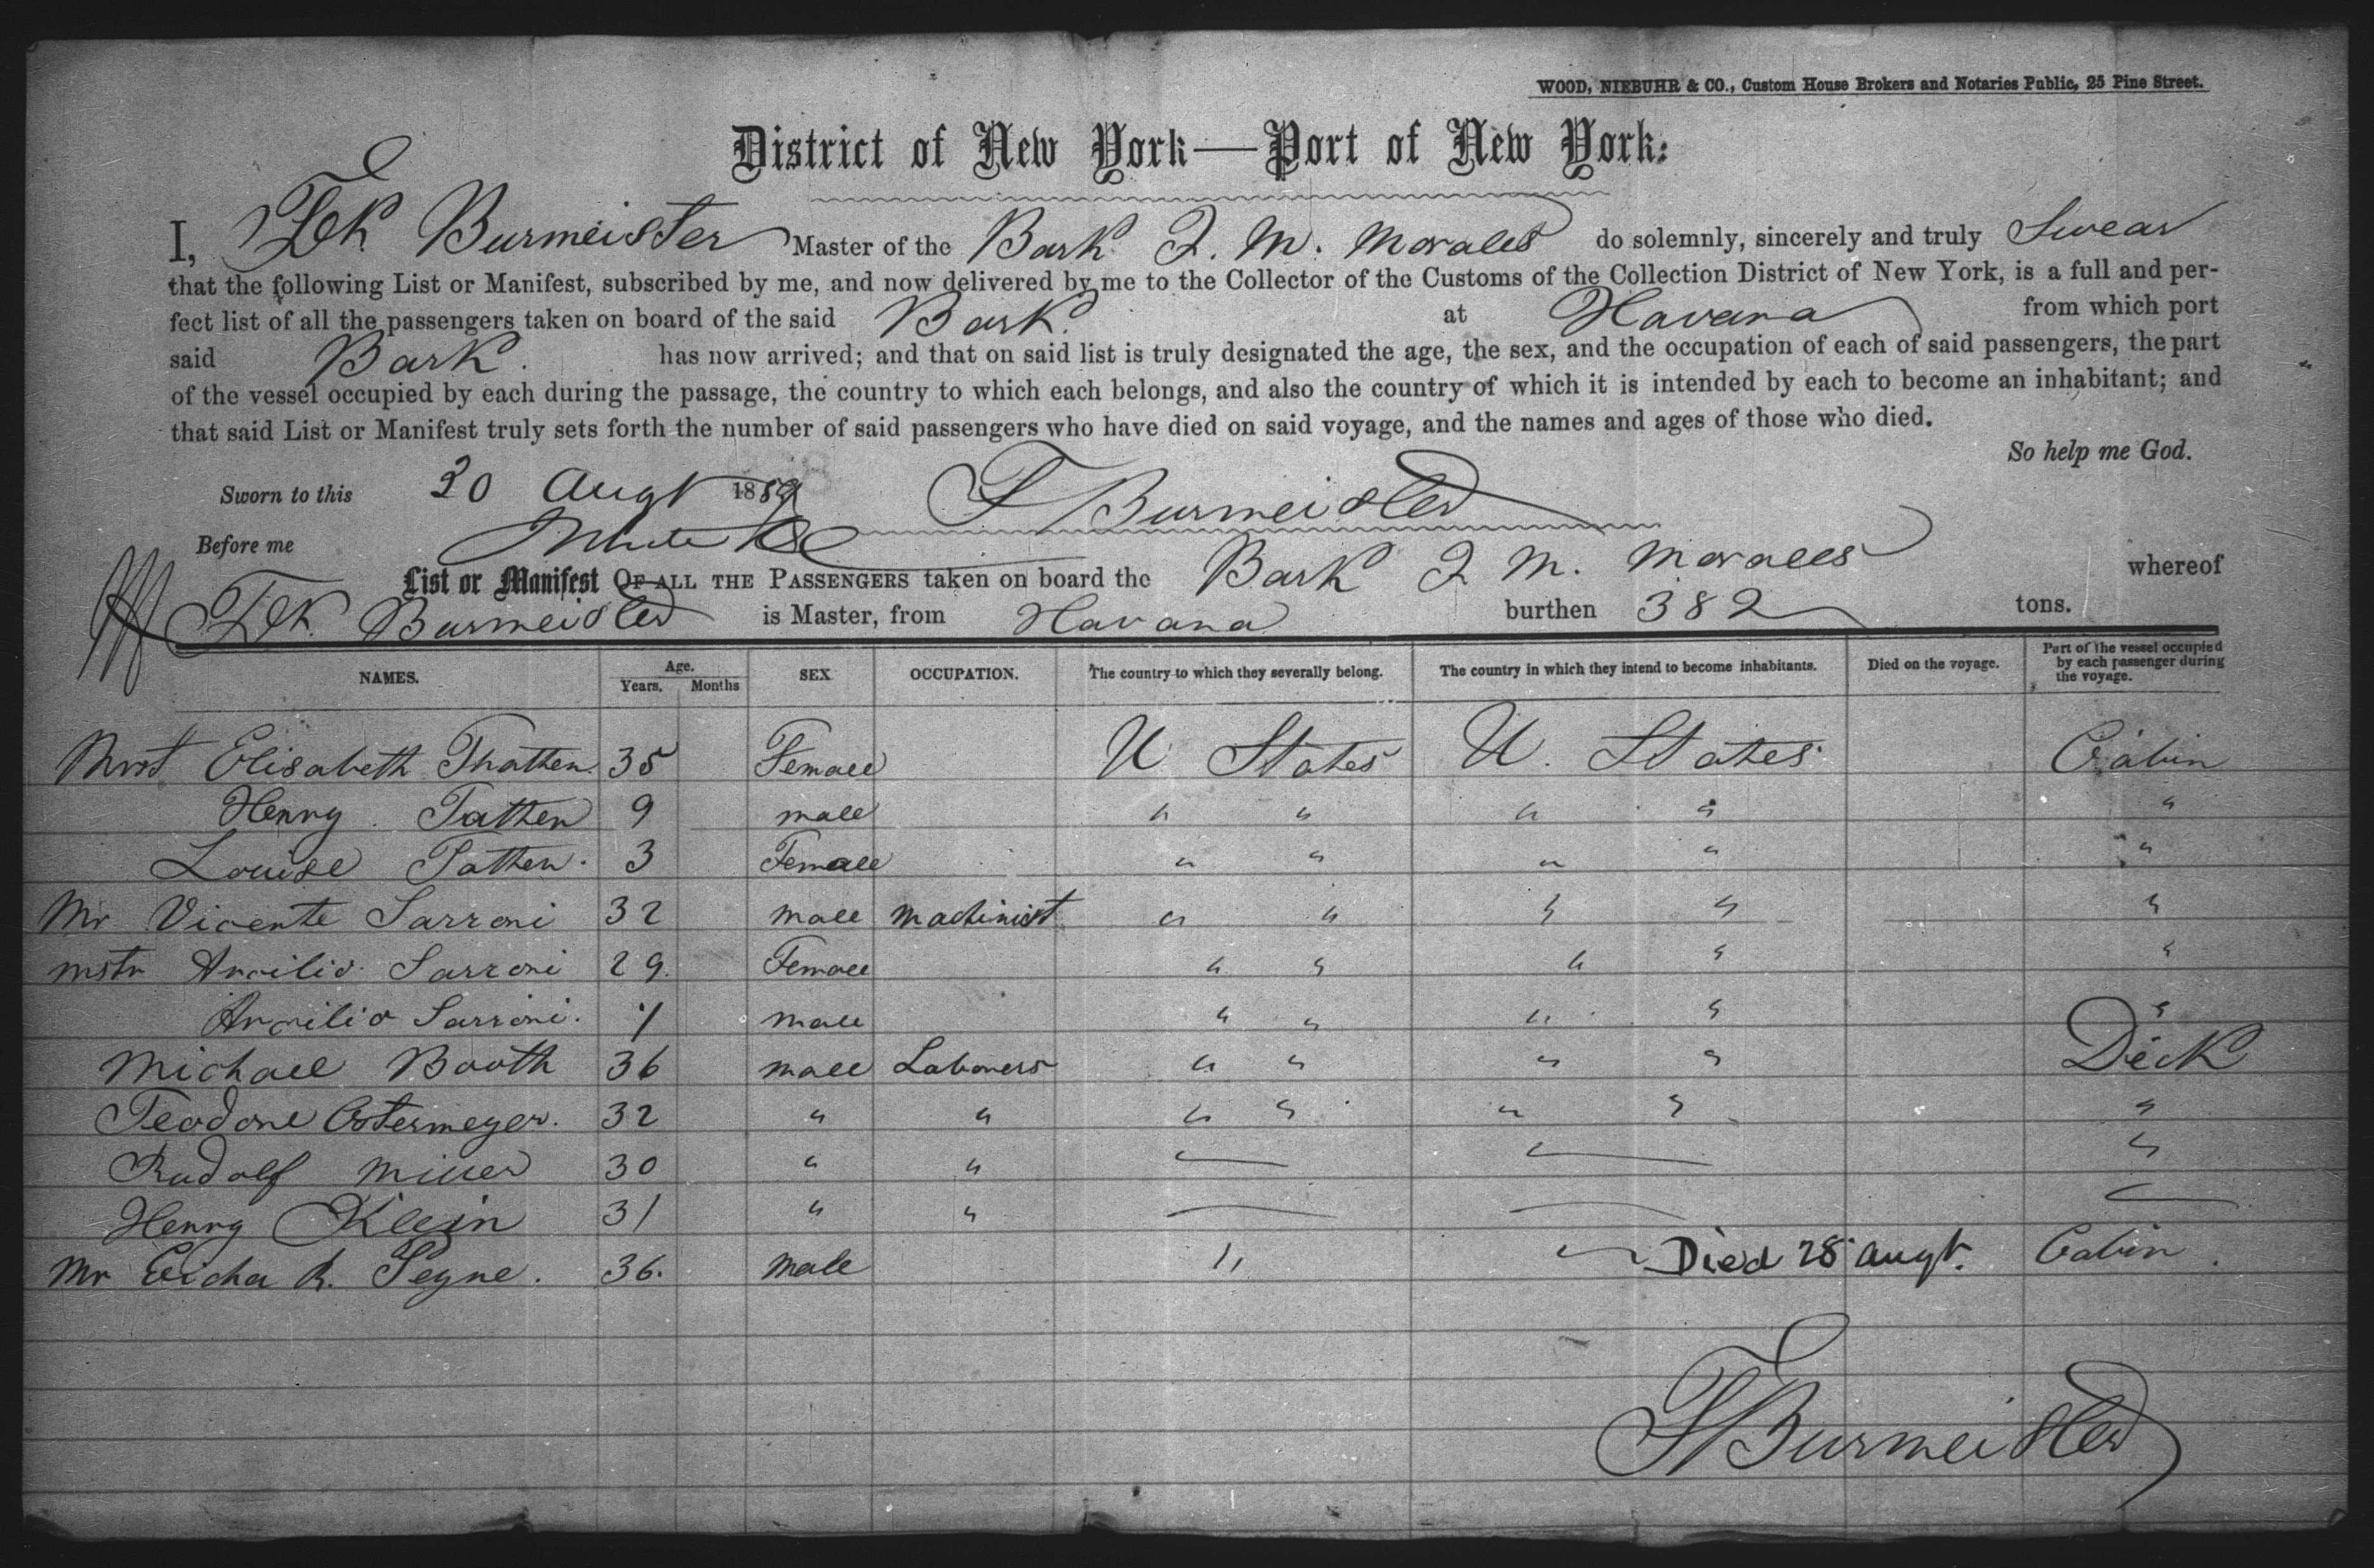 WOOD, NIEBUHR & CO., Custom House Brokers and Notaries Public, 25 Pine Street.
District of New York—Port of New York:
I, Fdk Burmeister Master of the Bark J. M. Morales do solemnly, sincerely and truly Swear
that the following List or Manifest, subscribed by me, and now delivered by me to the Collector of the Customs of the Collection District of New York, is a full and per-
fect list of all the passengers taken on board of the said Bark at Havana from which port
said Bark. has now arrived; and that on said list is truly designated the age, the sex, and the occupation of each of said passengers, the part
of the vessel occupied by each during the passage, the country to which each belongs, and also the country of which it is intended by each to become an inhabitant; and
that said List or Manifest truly sets forth the number of said passengers who have died on said voyage, and the names and ages of those who died.
So help me God.
Sworn to this 30 Augt 1889 F Burmeister
Before me
List or Manifest OF ALL THE PASSENGERS taken on board the Bark J M. Morales whereof
Fdk. Burmeister is Master, from Havana burthen 382 tons.
NAMES. Age. Years. Months SEX OCCUPATION. The country to which they severally belong. The country in which they intend to become inhabitants. Died on the voyage. Part of the vessel occupied by each passenger during the voyage.
Elisabeth Thatten. 35 Female U States U. States Cabin
Henry Tatten 9 male " " " " "
Louise Tatten. 3 Female " " " " "
Mr Vicente Sarroni 32 male machinist " " " " "
Sarroni 29. Female " " " " "
Sarroni. male " " " " "
Michael Booth 36 male Laborers " " " " Deck
Teodone Ostermeyer. 32 " " " " " " "
Rudolf Miller 30 " " "
Henry Klein 31 " "
Mr R. Peyne. 36. male " Died 28 augt. Cabin.
F Burmeister